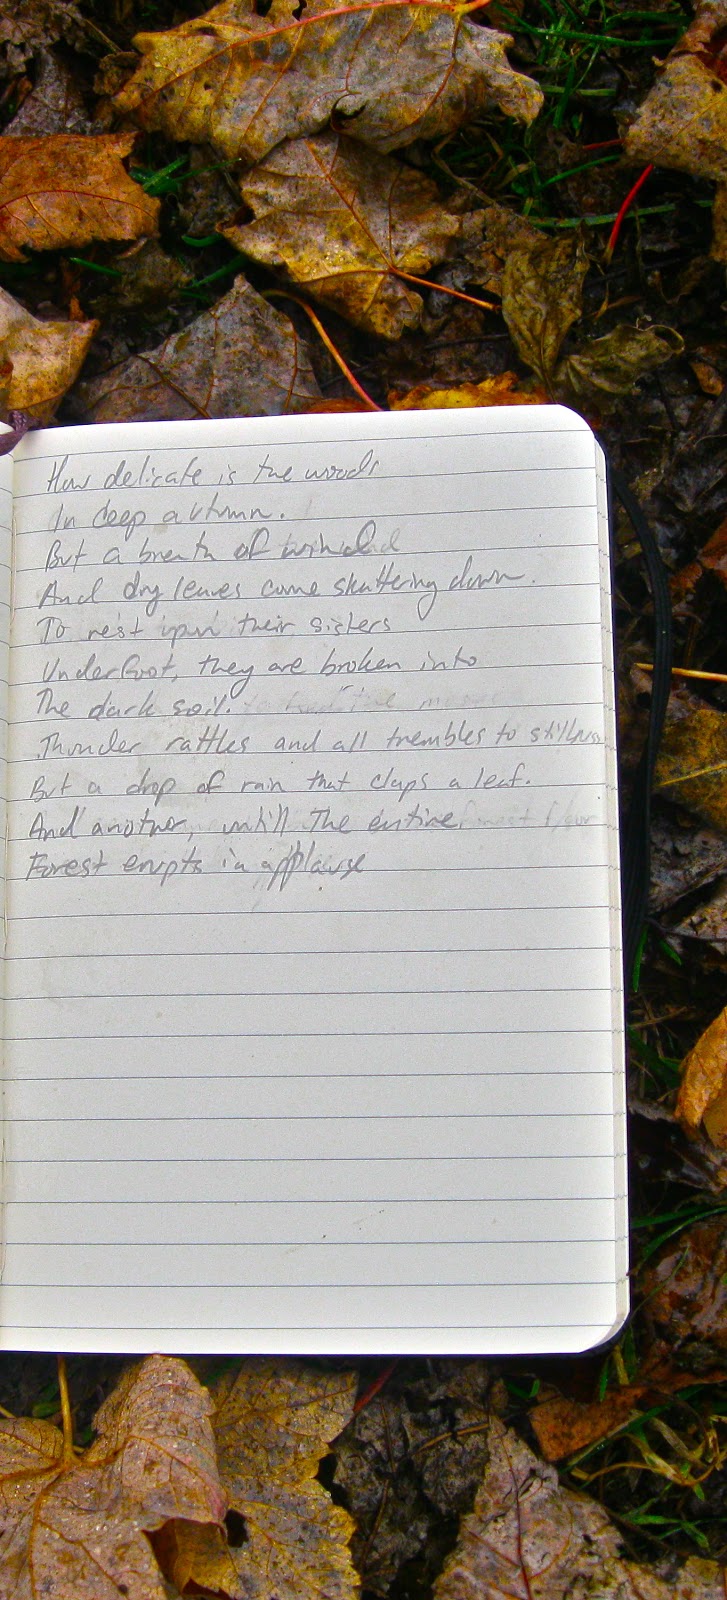 How delicate is the woods
In deep autumn.
But a breath of wind
And dry leaves come shattering down.
To rest upon their sisters
Underfoot, they are broken into
The dark soil.
Thunder rattles and all trembles to stillness
But a drop of rain that claps a leaf.
And another, untill The entire
Forest erupts in applause